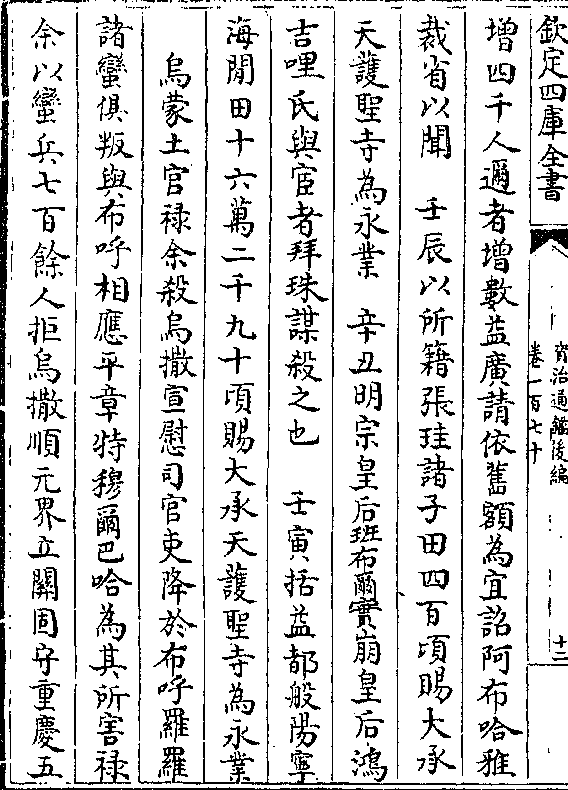 欽定四庫全書
資治通鑑後編
卷一百七十
十二
增四千人邇者增數益廣請依舊額為宜詔阿布哈雅
裁省以聞　壬辰以所籍張珪諸子田四百頃賜大承
天護聖寺為永業　辛丑明宗皇后班布爾實崩皇后鴻
吉哩氏與宦者拜珠謀殺之也　壬寅括益都般陽寧
海閒田十六萬二千九十頃賜大承天護聖寺為永業
烏蒙土官祿余殺烏撒宣慰司官吏降於布呼羅羅
諸蠻俱叛與布呼相應平章特穆爾巴哈為其所害祿
余以蠻兵七百餘人拒烏撒順元界立關固守重慶五